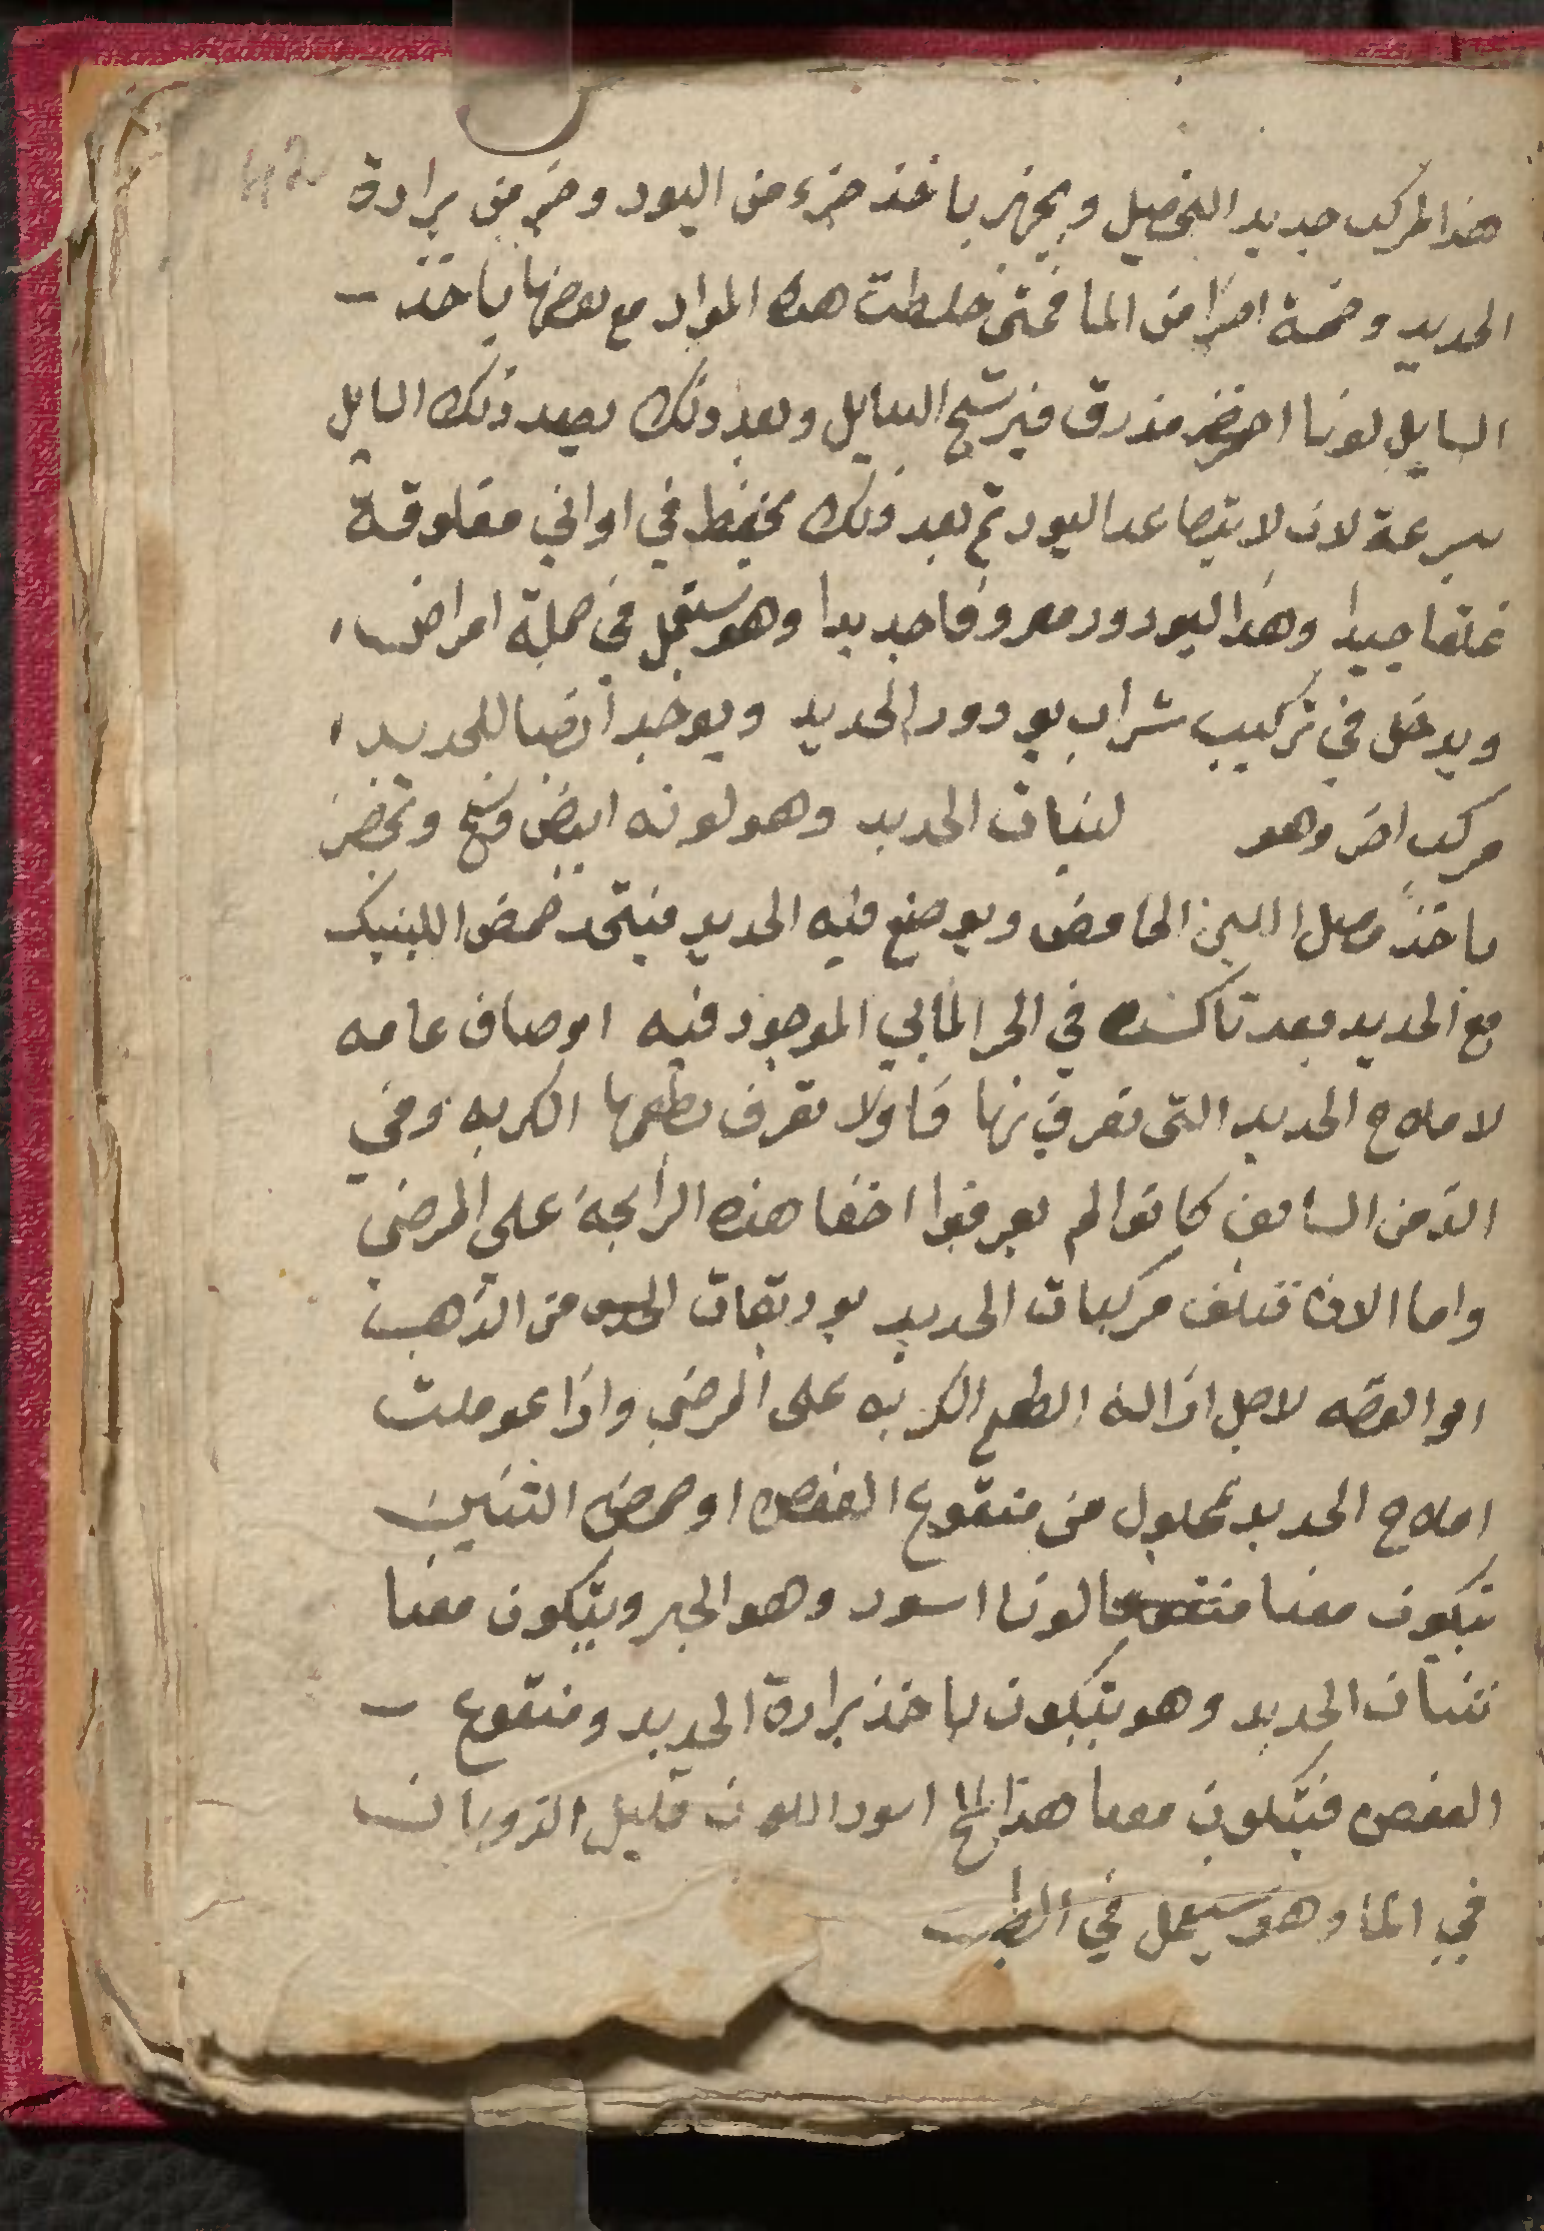 42
هذا المركب جديد التحصيل ويجهز باخذ جزء من اليود وجز من برادة
الحديد وخمسة اجزا من الما فمتى خلطت هذه المواد مع بعضها ياخذ –
السايل لونا اخضر مزرق فيرشح السايل وبعد ذلك يصعد ذلك السايل
بسرعة لان لا يتصاعد اليود ثم بعد ذلك يحفظ في اواني مغلوقة
غلقا جيدا وهذا اليودور معروفا جديدا وهو يستعمل في جملة امراض
ويدخل في تركيب شراب يودور الحديد ويوخد ايضا للحديد
مركب اخر وهو لبنات الحديد وهو لونه ابيض وسخ وتحضر
باخذ مصل اللبن الحامض ويوضع فيه الحديد فيتحد حمض اللبنيك
مع الحديد بعد تاكسده في الجز المايي الموجود فيه اوصاف عامه
لاملاح الحديد التى تعرف بها فاولا تعرف بطعمها الكريه وفي
الزمن السابق كانوا لم يعرفوا اخفا هذه الرايحة على المرضي
واما الان تغلف مركبات الحديد بوريقات من الذهب
او الفضه لاجل ازالة الطعم الكريه على المرضي واذا عوملت
املاح الحديد بمحلول من منقوع العفص او حمض التنين
يتكون معنا منقوعا لونا اسود وهو الحبر ويتكون معنا
تنات الحديد وهو يتكون باخذ برادة الحديد ومنقوع –
العفص فيتكون معنا هذا الملح اسود اللون قليل الذوبان
في الما وهو يستعمل في الطب